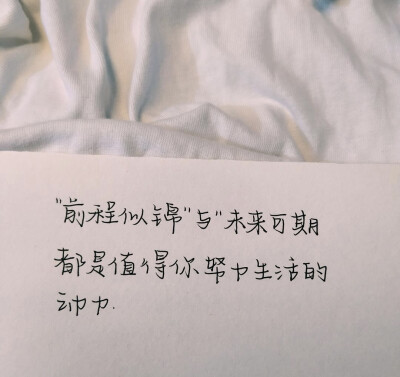 "前程似锦"与"未来可期
都是值得你努力生活的
动力.